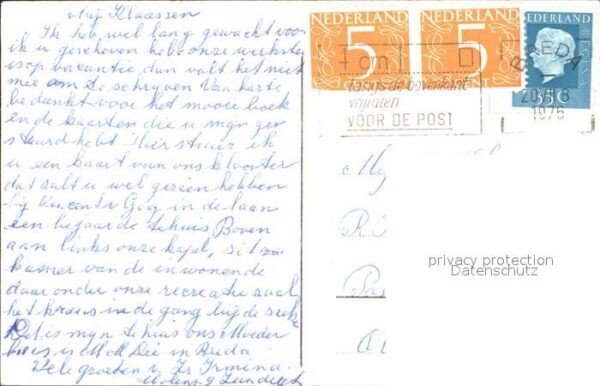 Mij Klaassen
Ik heb wel lang gewacht voor
ik u geschreven heb onze werkster
is op vacantie dan valt het niet
mee om te schrijven Van harte
bedankt voor het mooie boek
en de kaarten die u mijn ge
stuurd hebt Hier stuur ik
u een kaart van ons klooster
dat sult u wel gezien hebben
bij Vincent v Gog in de laan
een bejaarde tehuis Boven
aan links onze kapel, sit zu
kamer van de inwonende
daar onder onze recreatie zaal
het kruis in de gang bij de
Dit is mijn tehuis ons Moeder
huis is M Dei in Breda
Vele groeten v Zr Irmina
Molenstr 9 Zundert
NEDERLAND
5
NEDERLAND
5
NEDERLAND
35c
BREDA
1976
7 cm
langs de bovenkant
vrijlaten
VOOR DE POST
privacy protection
Datenschutz